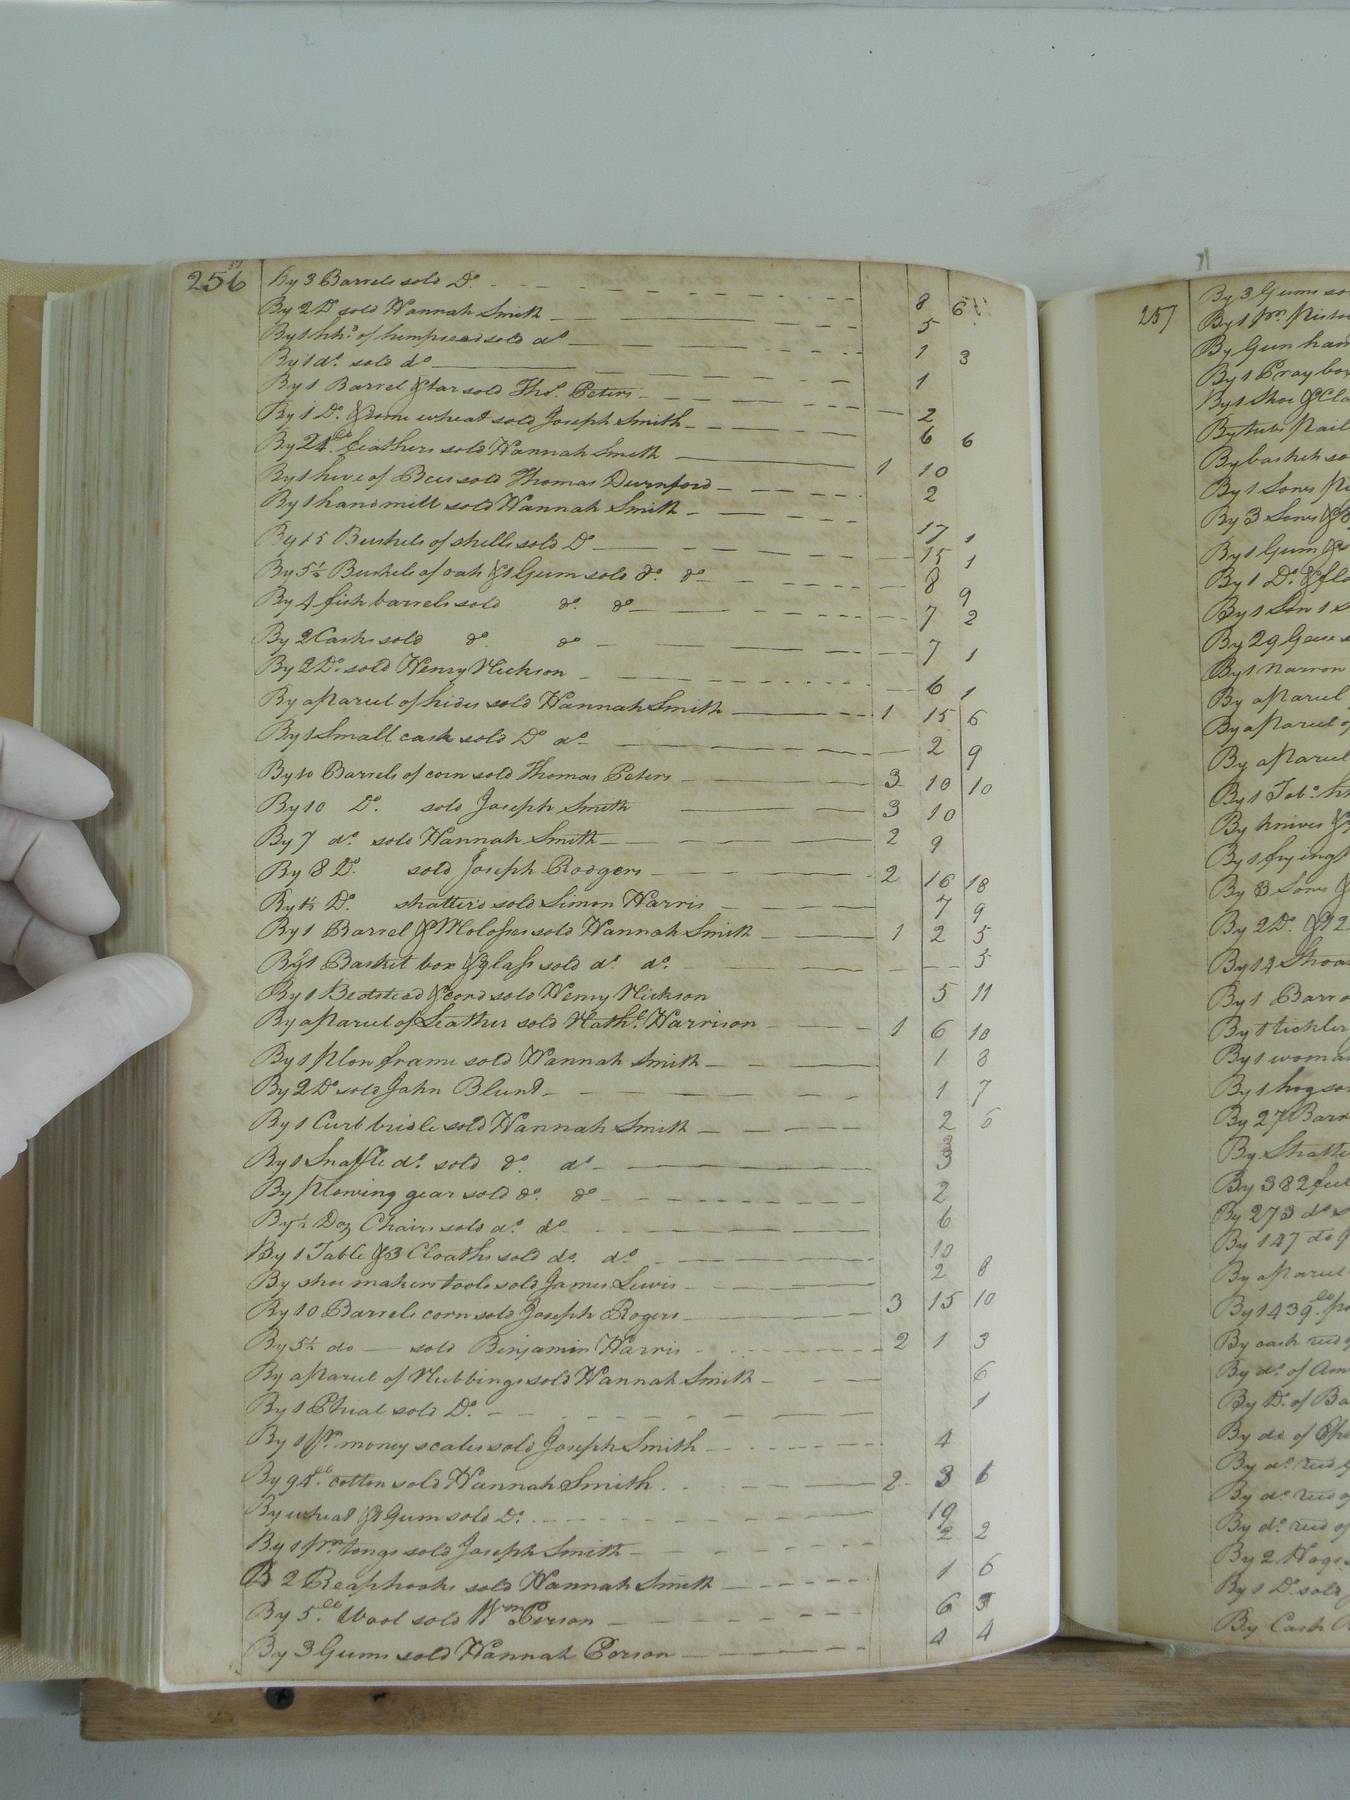 256
By 3 Barrels sold Do. 8 6
By 2 Do sold Hannah Smith 5
By 1 hhd of hempseed sold do 1 3
By 1 do. sold do 1
By 1 Barrel & tar sold Thos. Peters 2
By 1 Do. & some wheat sold Joseph Smith 6 6
By 24 lb feathers sold Hannah Smith 1 10
By 1 hive of Bees sold Thomas Durnford 2
By 1 handmill sold Hannah Smith 17 1
By 15 Bushels of shells sold Do 15 1
By 5½ Bushels of oats & 1 Gum sold do. do 8 9
By 4 fish barrels sold do. do 7 2
By 2 Casks sold do. do 7 1
By 2 Do. sold Henry Hickson 6 1
By a Parcel of hides sold Hannah Smith 1 15 6
By 1 Small cask sold Do do 2 9
By 10 Barrels of corn sold Thomas Peters 3 10 10
By 10 Do. sold Joseph Smith 3 10
By 7 do. sold Hannah Smith 2 9
By 8 Do. sold Joseph Rodgers 2 16 18
By ½ Do. shatters sold Simon Harris 7 9
By 1 Barrel & Molosses sold Hannah Smith 1 2 5
By 1 Basket box & glass sold do. do. 5
By 1 Bedstead & cord sold Henry Hickson 5 11
By a Parcel of Leather sold Nathl. Harrison 1 6 10
By 1 Plow frame sold Hannah Smith 1 8
By 2 Do sold John Blunt 1 7
By 1 Curb bridle sold Hannah Smith 2 6
By 1 Snaffle do. sold do. do 3
By Plowing gear sold do. do 2
By ½ Doz Chairs sold do. do 6
By 1 Table & 3 Cloaths sold do. do. 10
By shoe makers tools sold James Lewis 2 8
By 10 Barrels corn sold Joseph Rogers 3 15 10
By 5½ do sold Binjamin Harris 2 1 3
By a Parcel of Nubbings sold Hannah Smith 6
By 1 Pheal sold Do. 1
By 1 pr. money scales sold Joseph Smith 4
By 94 lb. cotton sold Hannah Smith 2 3 6
By wheat & Gum sold Do. 19
By 1 pr. tongs sold Joseph Smith 2 2
B 2 Reaphooks sold Hannah Smith 1 6
By 5 lb Wool sold Wm Person 6 3
By 3 Gums sold Hannah Person 4 4
257
By 3 Gums so
By 1 pr. Pisto
By Gun ham
By 1
By 1 Shoe & Cla
By
By baskets so
By 1
By 3
By 1 Gum &
By 1 Do. & fla
By 1
By 29 Geese s
By 1 narrow
By a Parcel
By a Parcel o
By a Parcel
By 1 Tobo. h
By knives &
By 1 frying P
By 8
By 2 Do. & 12
By 14 Shoa
By 1 Barr
By 1 tickler
By 1 woma
By 1 hog so
By 27 Barr
By Shatte
By 382 feet
By 273 do s
By 147 do
By a Parcel
By 1439 lb
By cash recd
By do. of
By D. of Ba
By do of
By do. recd
By do. recd of
By do. recd of
By 2 Hogs
By 1 Do. sold
By Cash